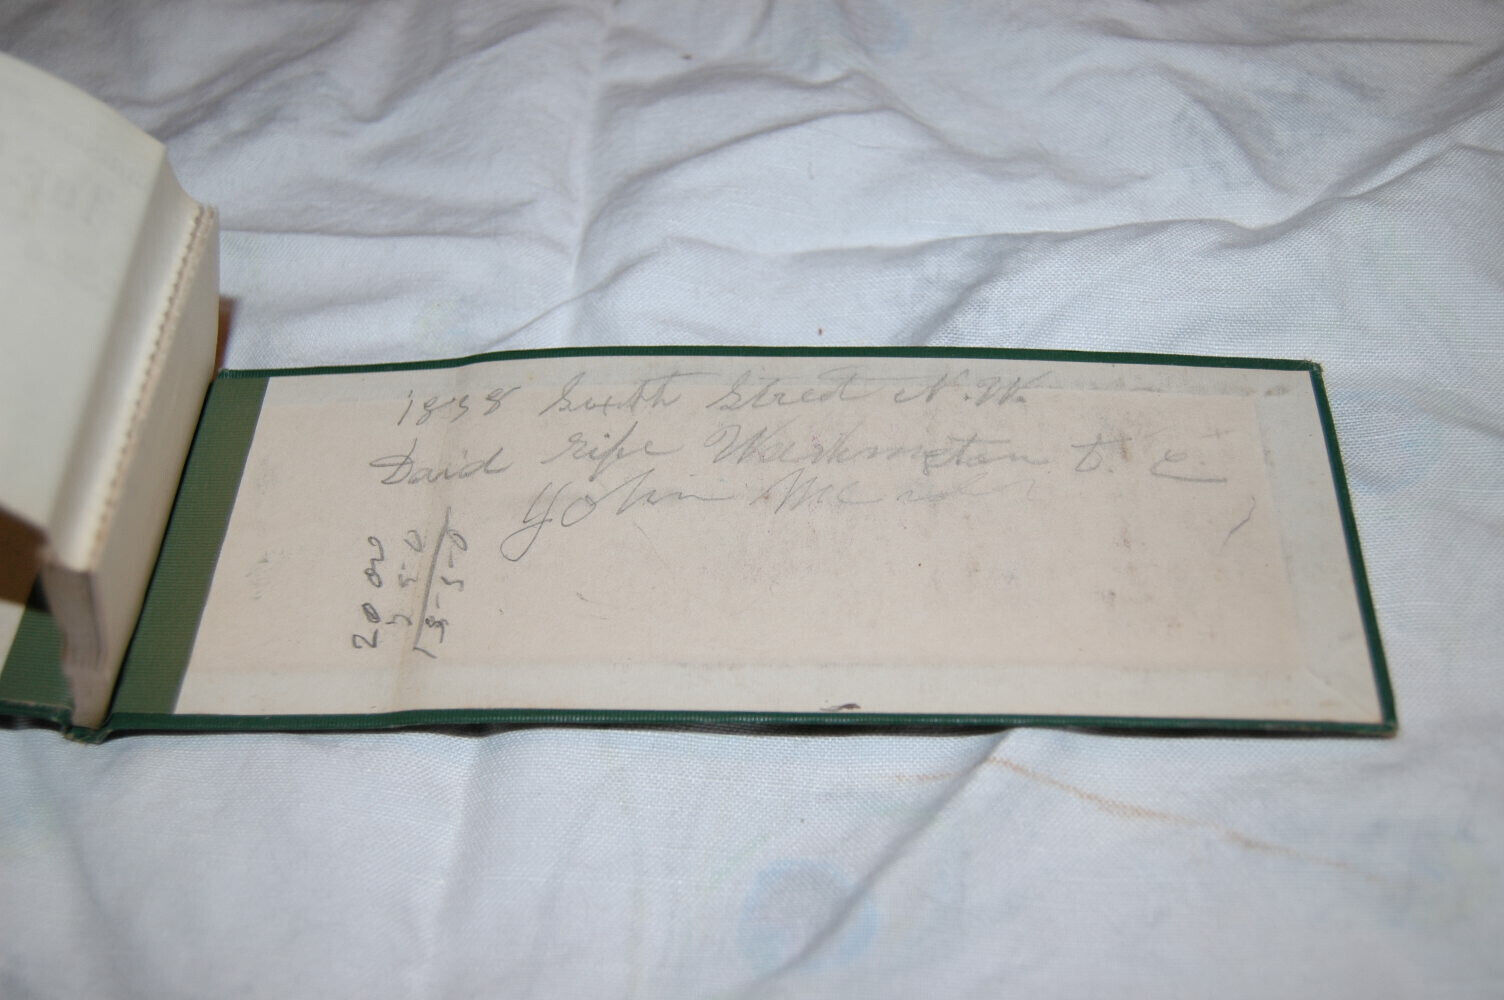 1838 Sixth Street N.W.
David Washington D. C.
John
20 00
1 5 0
18 5 0